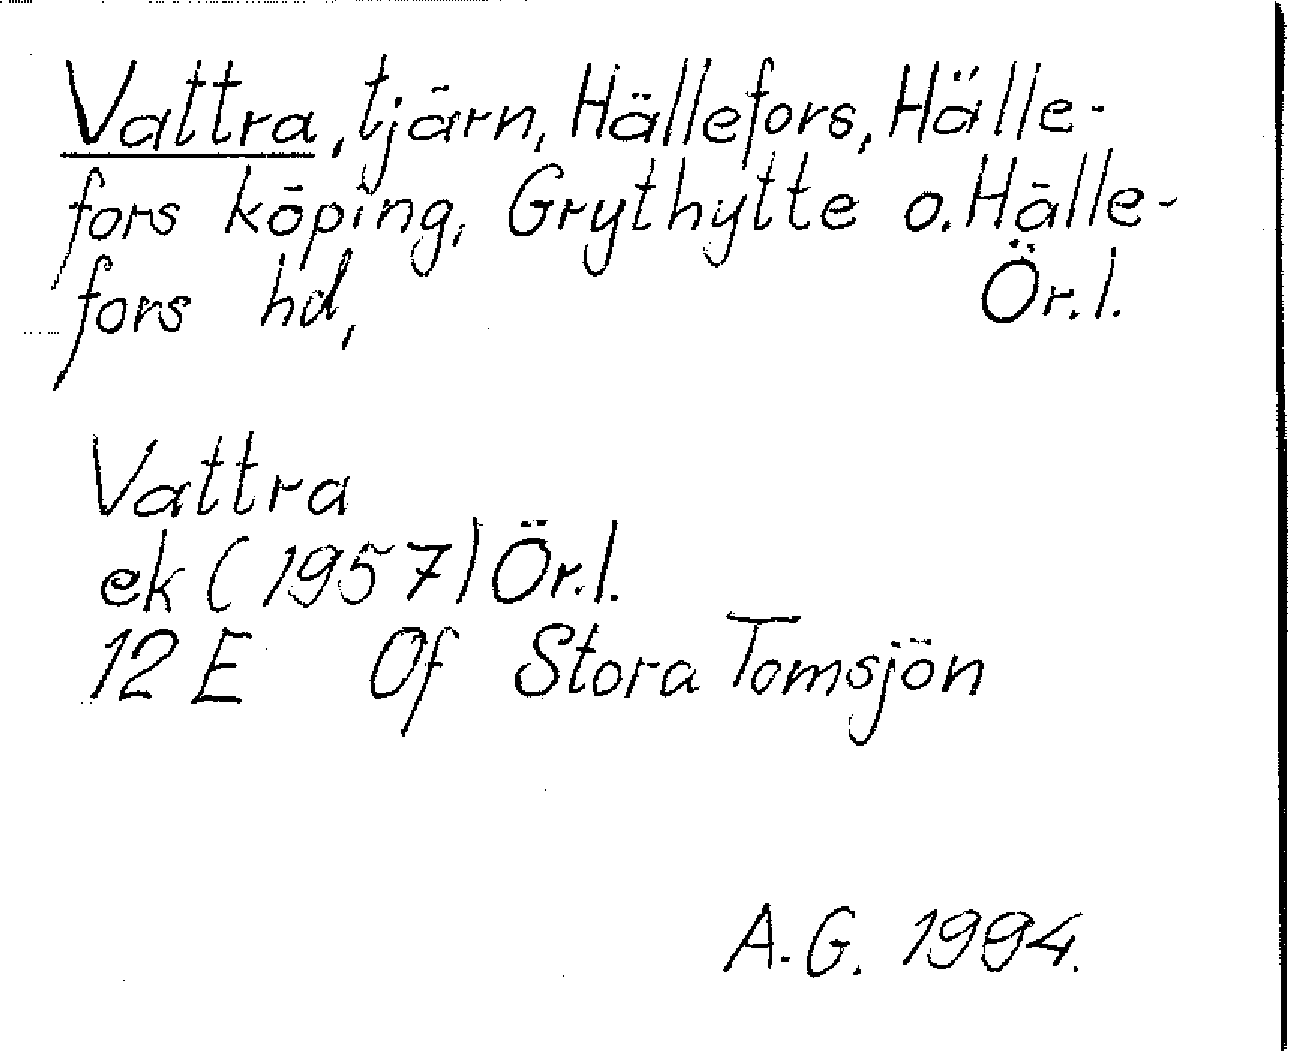 Vattra, tjärn, Hällefors, Hälle-
fors köping, Grythytte o. Hälle-
fors hd, Ör.l.
Vattra
ek (1957) Ör.l.
12 E Of Stora Tomsjön
A.G. 1994.